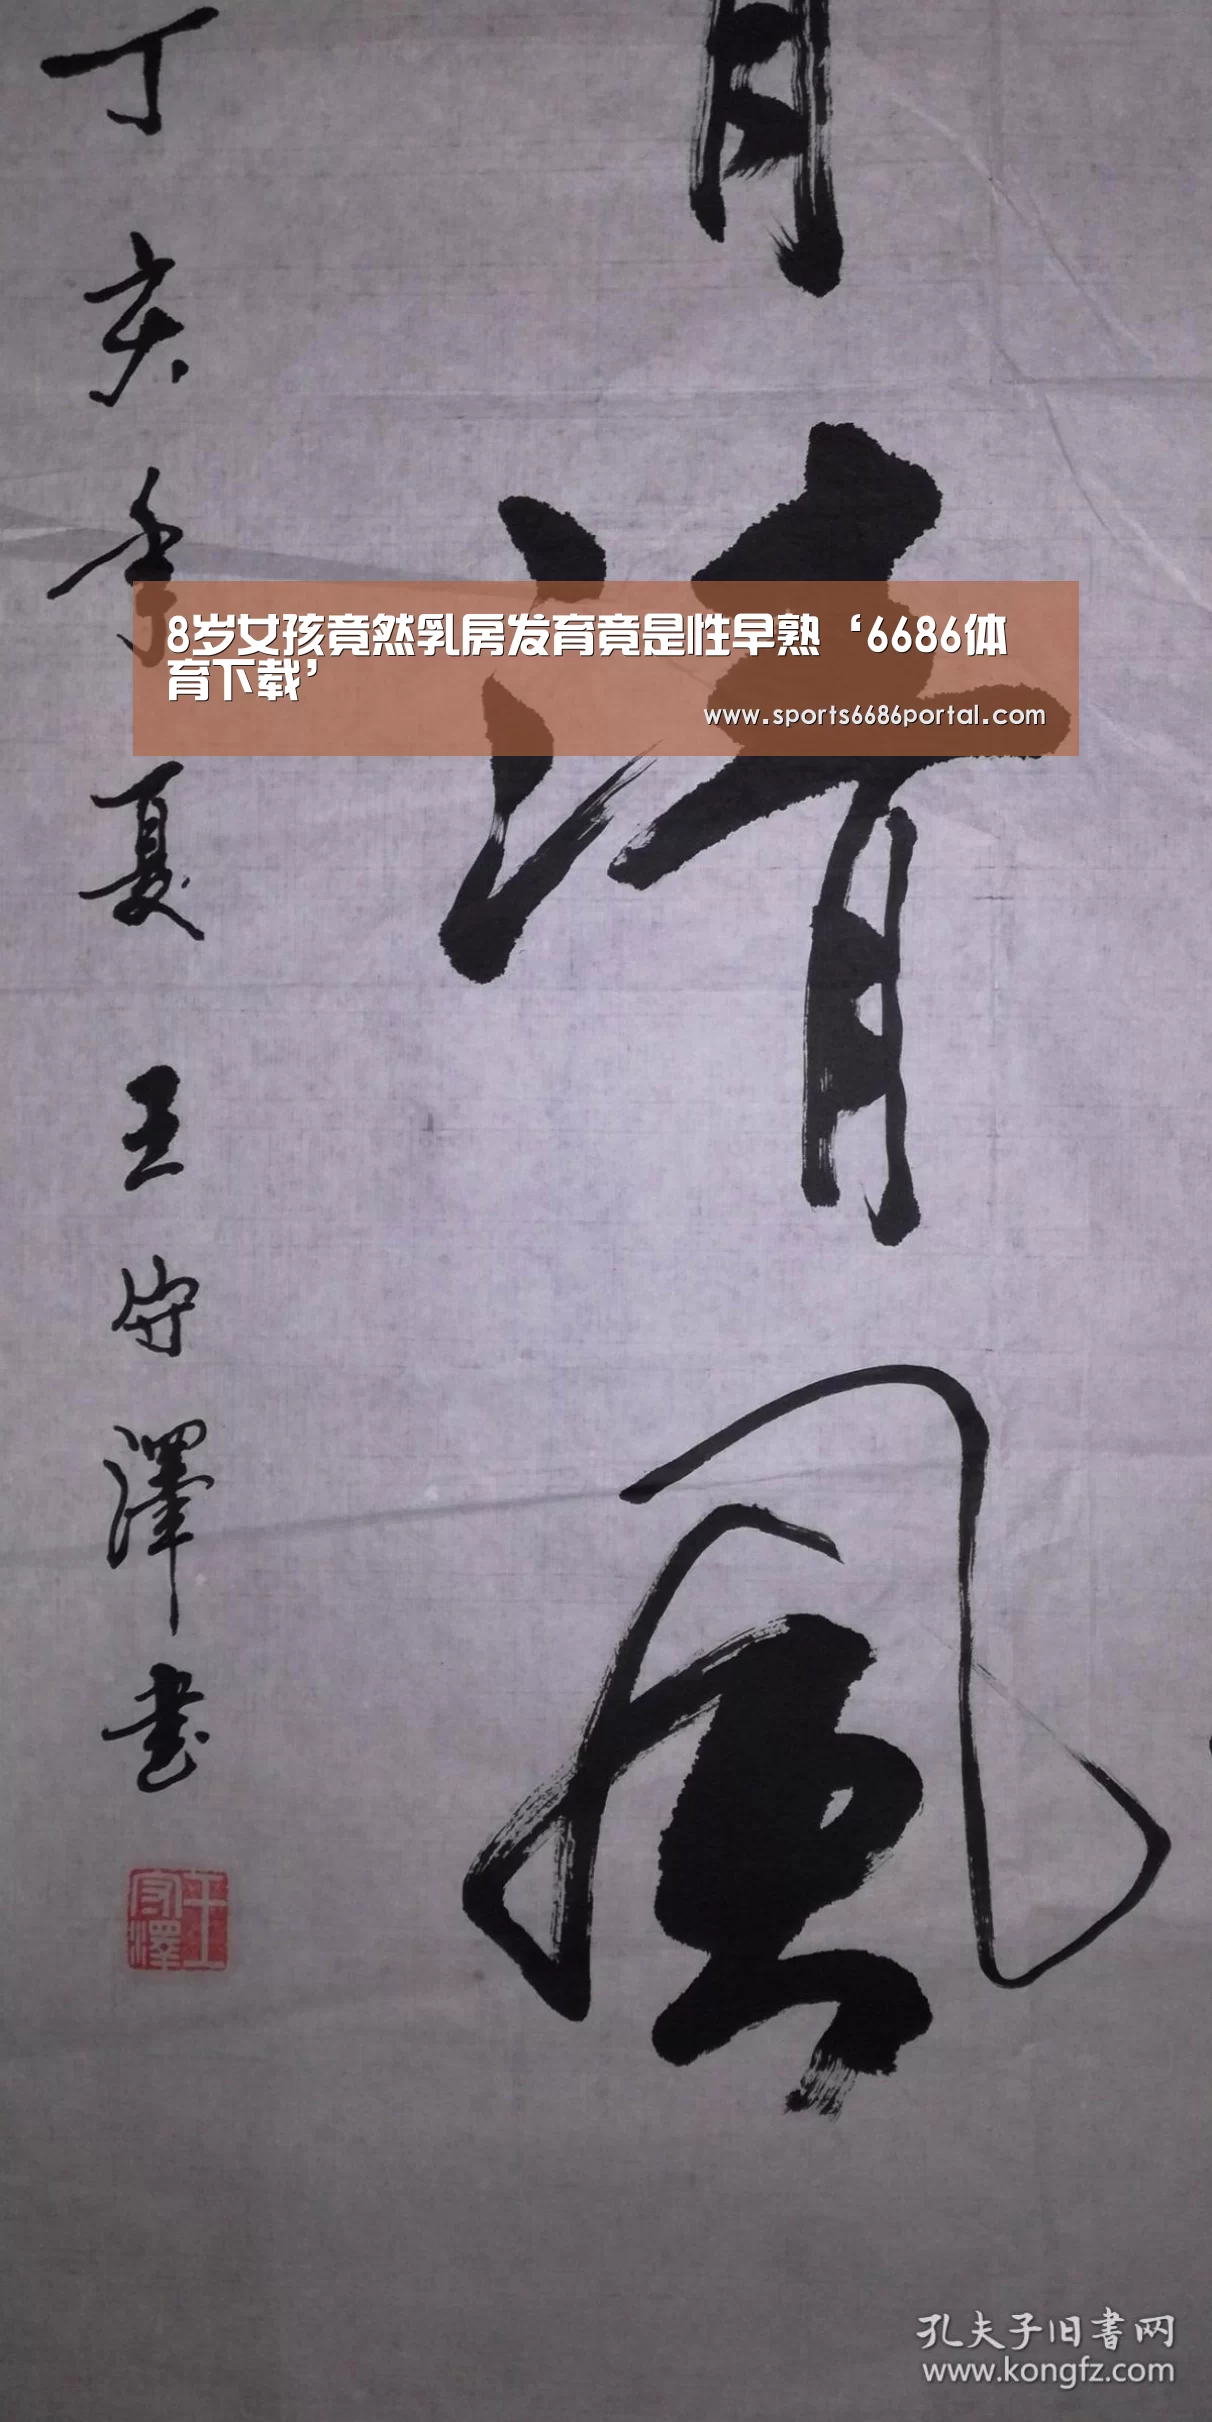 清风
丁亥年夏 王守泽書
王守澤
8岁女孩竟然乳房发育竟是性早熟‘6686体
育下载’
www.sports6686portal.com
孔夫子旧書网
www.kongfz.com